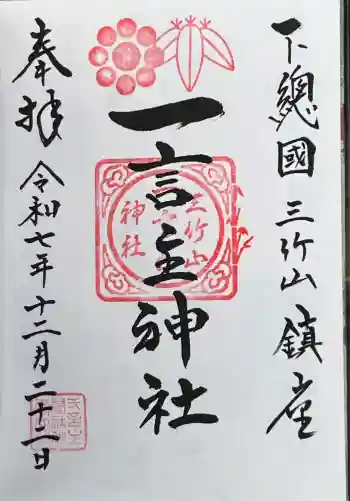 下總國三竹山鎮座
一言主神社
三竹山
神社
奉拝
令和七年十二月二十二日